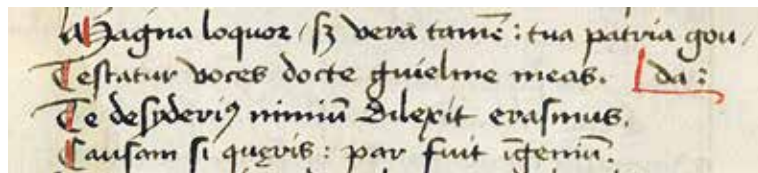 Magna loquor / sȝ vera tamē : tua patria gou /
Testatur voces docte guielme meas. da :
Te desyderiꝰ nimiū dilexit erasmus.
Causam si quęris : par fuit īgeniū.